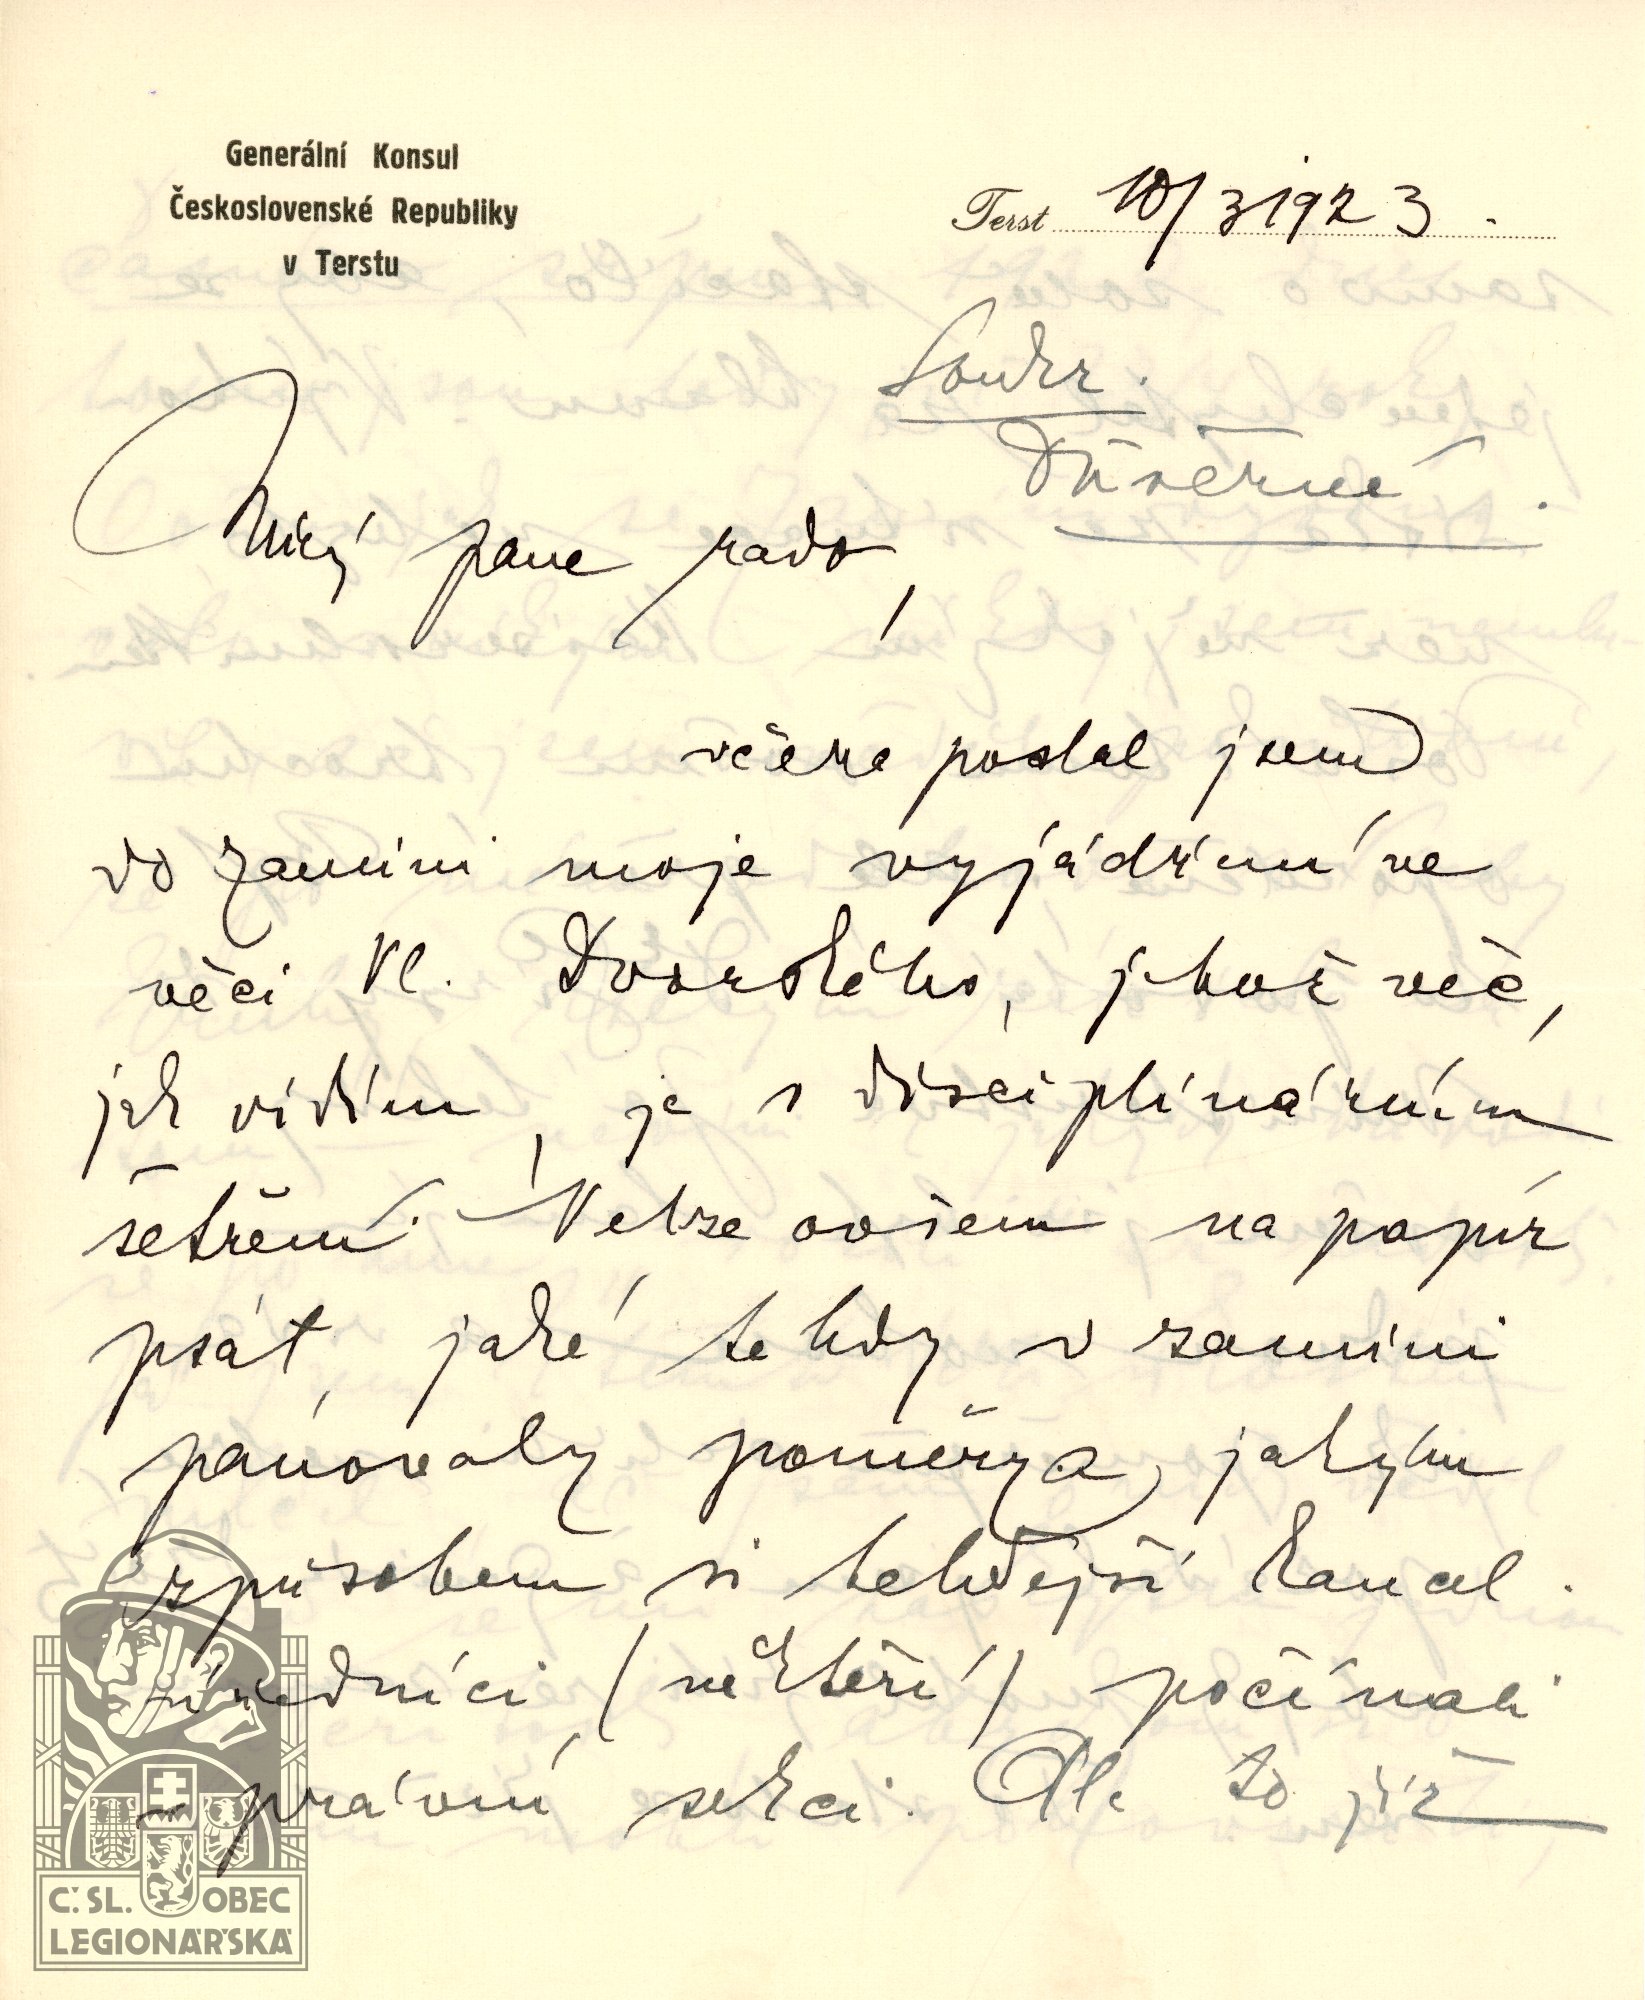 Generální Konsul
Československé Republiky
v Terstu
Terst 10/3 1923.
Soukr.
Důvěrné.
Milý pane rado,
včera poslal jsem
do zamini moje vyjádření ve
věci Vl. Dvorského, jehož věc,
jak vidím, je v disciplinárním
šetření. Nelze ovšem na papír
psát, jaké tehdy v zamini
panovaly poměry a jakým
způsobem si tehdejší kancel.
úředníci (někteří) počínali
v právní sekci. Ale to již
Č. SL. OBEC
LEGIONÁŘSKÁ